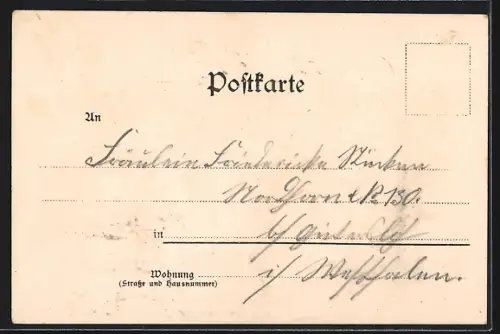 Postkarte
An
Fräulein Friedericke
Nordhorn No 130.
in b/ Gütersloh
Wohnung i/ Westfalen.
(Straße und Hausnummer)